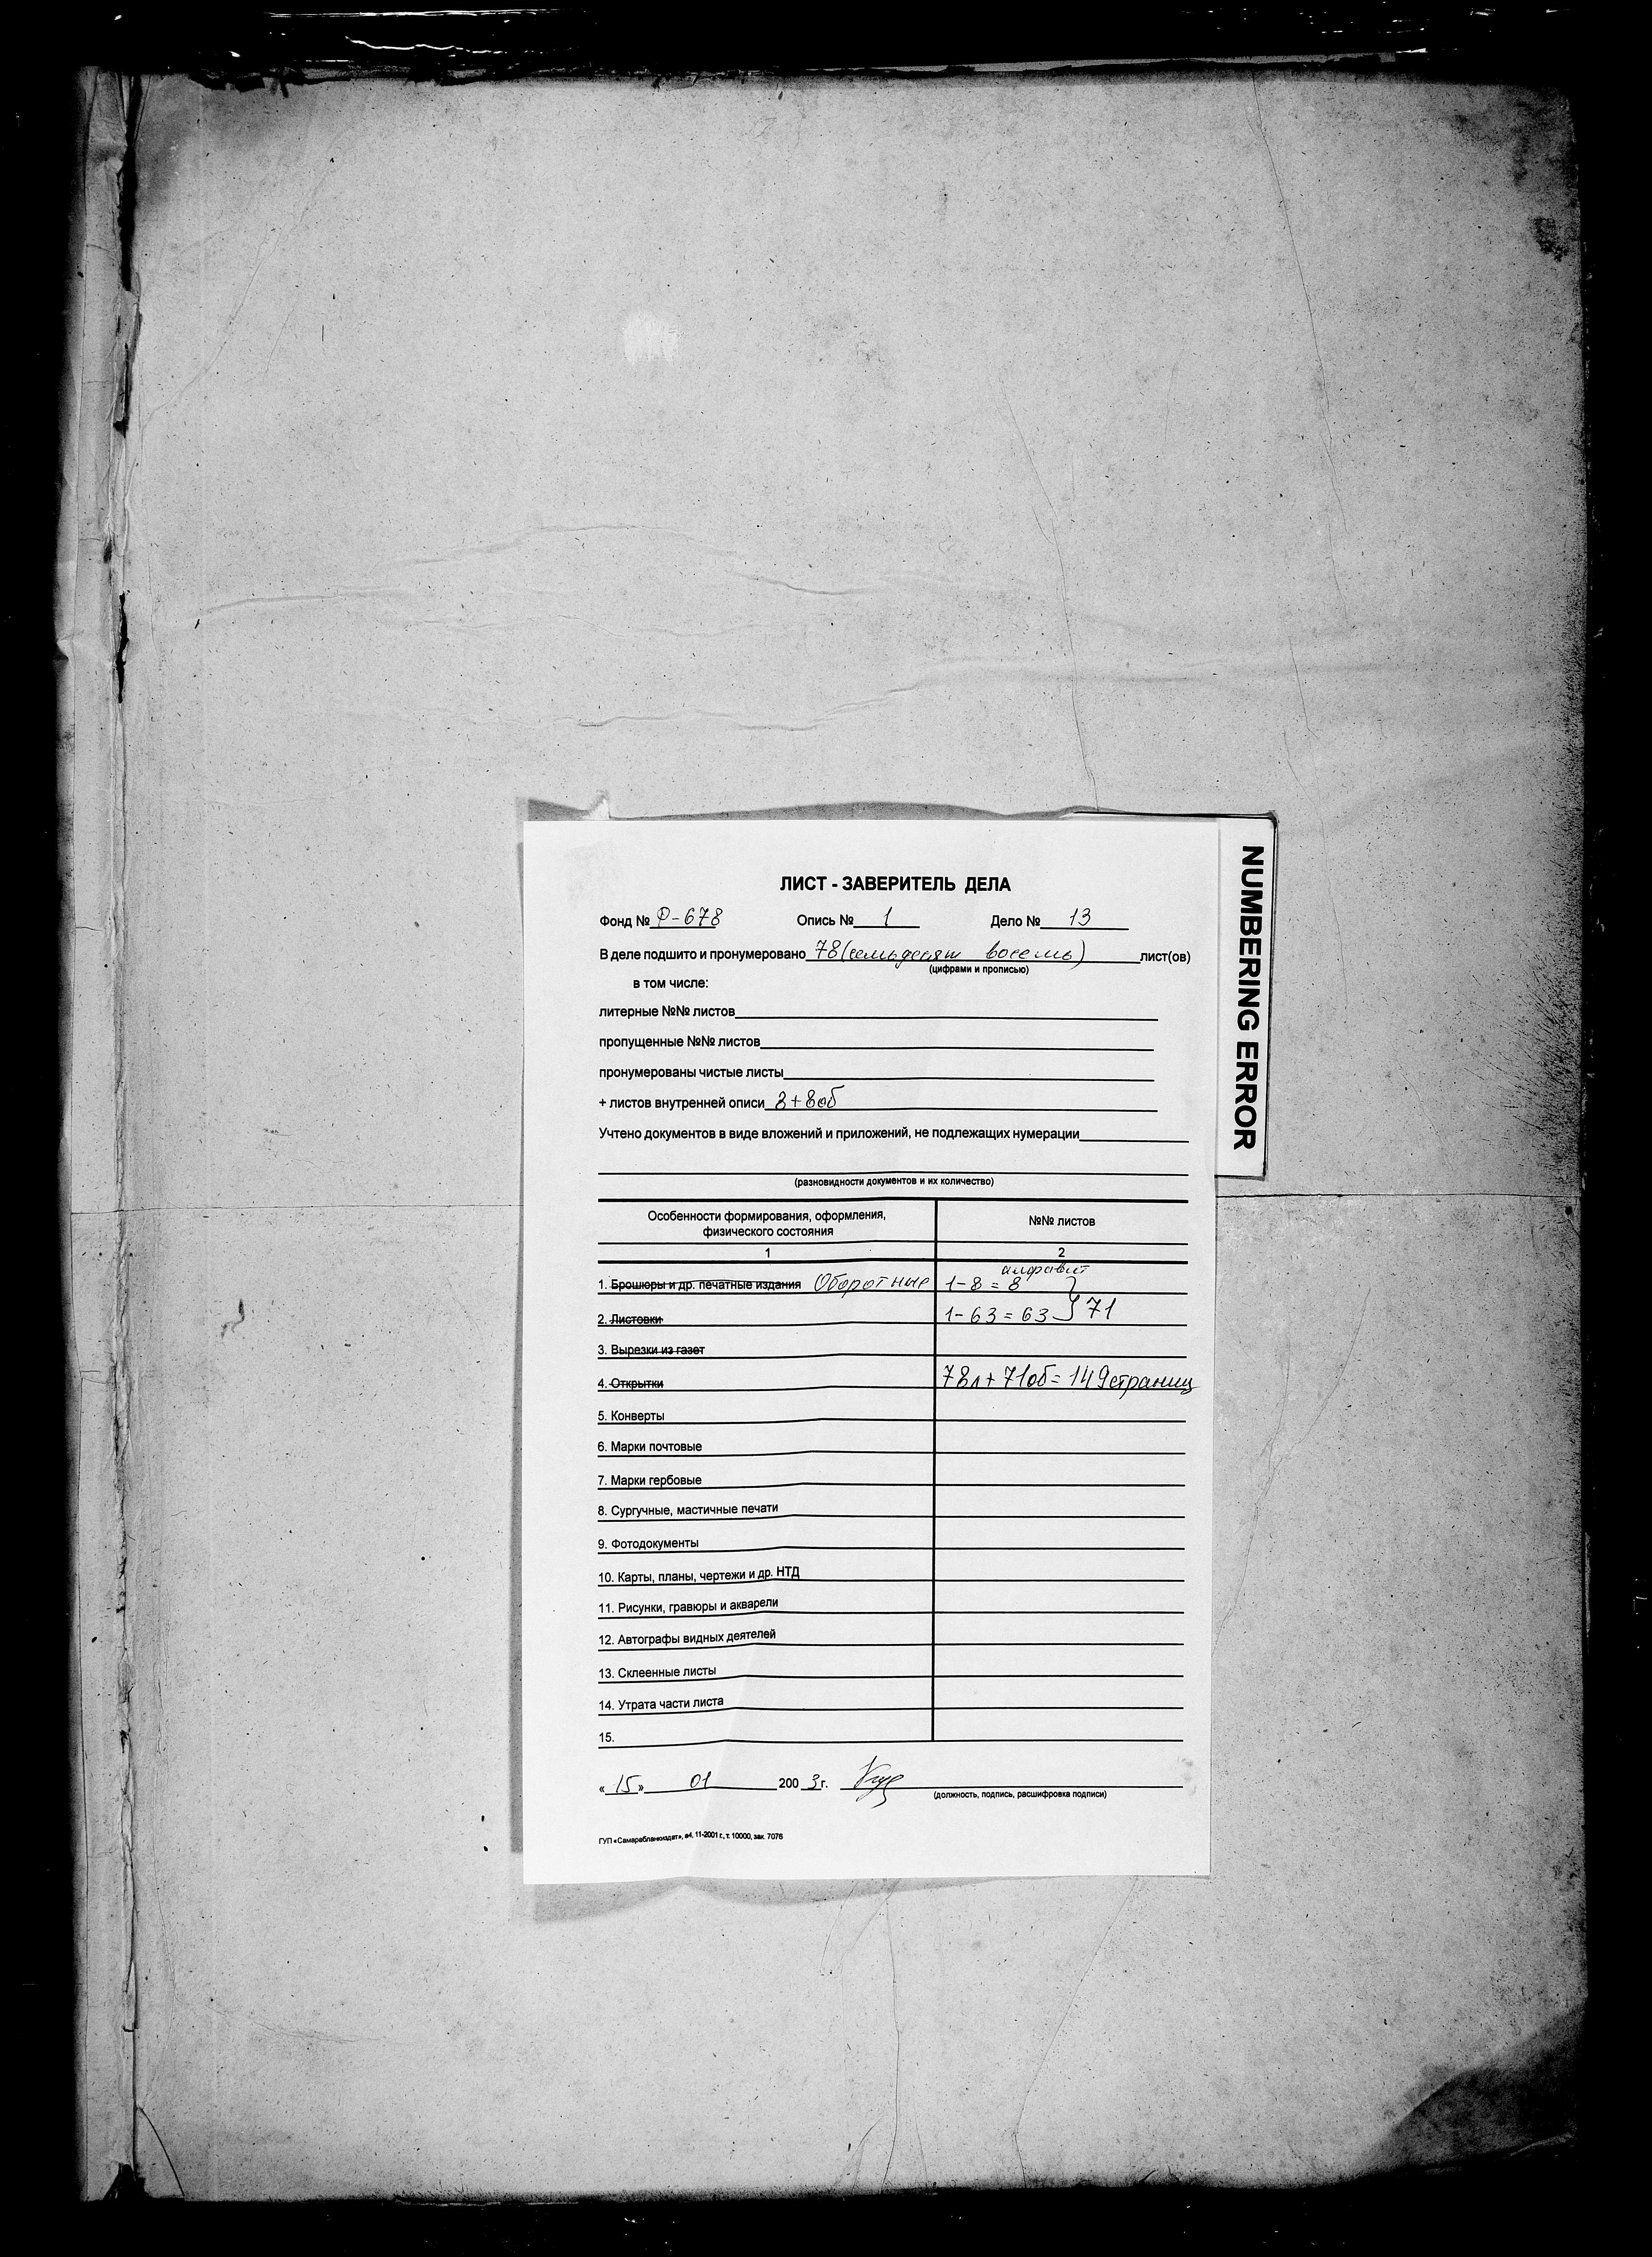 ЛИСТ - ЗАВЕРИТЕЛЬ ДЕЛА
Фонд № Р-678 Опись № 1 Дело № 13
В деле подшито и пронумеровано 78 (семьдесят восемь) лист(ов)
(цифрами и прописью)
в том числе:
литерные №№ листов
пропущенные №№ листов
пронумерованы чистые листы
+ листов внутренней описи 8+8об
Учтено документов в виде вложений и приложений, не подлежащих нумерации
(разновидности документов и их количество)
Особенности формирования, оформления, физического состояния №№ листов
1 2
алфавит
1. Брошюры и др. печатные издания Оборотные 1-8=8
2. Листовки 1-63=63 } 71
3. Вырезки из газет
4. Открытки 78л+71об=149страниц
5. Конверты
6. Марки почтовые
7. Марки гербовые
8. Сургучные, мастичные печати
9. Фотодокументы
10. Карты, планы, чертежи и др. НТД
11. Рисунки, гравюры и акварели
12. Автографы видных деятелей
13. Склеенные листы
14. Утрата части листа
15.
«15» 01 2003г.
(должность, подпись, расшифровка подписи)
ГУП «Самарабланкиздат», а4, 11-2001 г., т. 10000, зак. 7076
NUMBERING ERROR